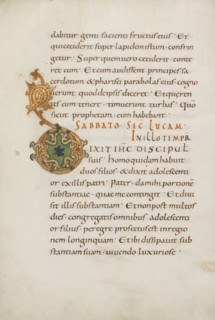 dabitur genti facienti fructus eius · Et
qui ceciderit super lapidem istum · confrin
getur · Super quem vero ceciderit · conte
ret eum · Et cum audissent principes sa
cerdotum & pharisei parabolas eius · cogno
uerunt quod de ipsis diceret · Et querentes
eum tenere · timuerunt turbas · Quo
sicut prophetam eum habebant
SABBATO · SEC LUCAM ·
IN ILLO TEMPR
DIXIT IHC DISCIPUL
suis homo quidam habuit
duos filios & dixit adolescenti
or ex illis patri · Pater · da mihi portione
substantiae · quae me contingit · Et diui
sit illis substantiam · Et non post multos
dies · congregatis omnibus adolescenti
or filius · peregre profectus est in regio
nem longinquam · Et ibi dissipauit sub
stantiam suam · uiuendo luxuriose ·